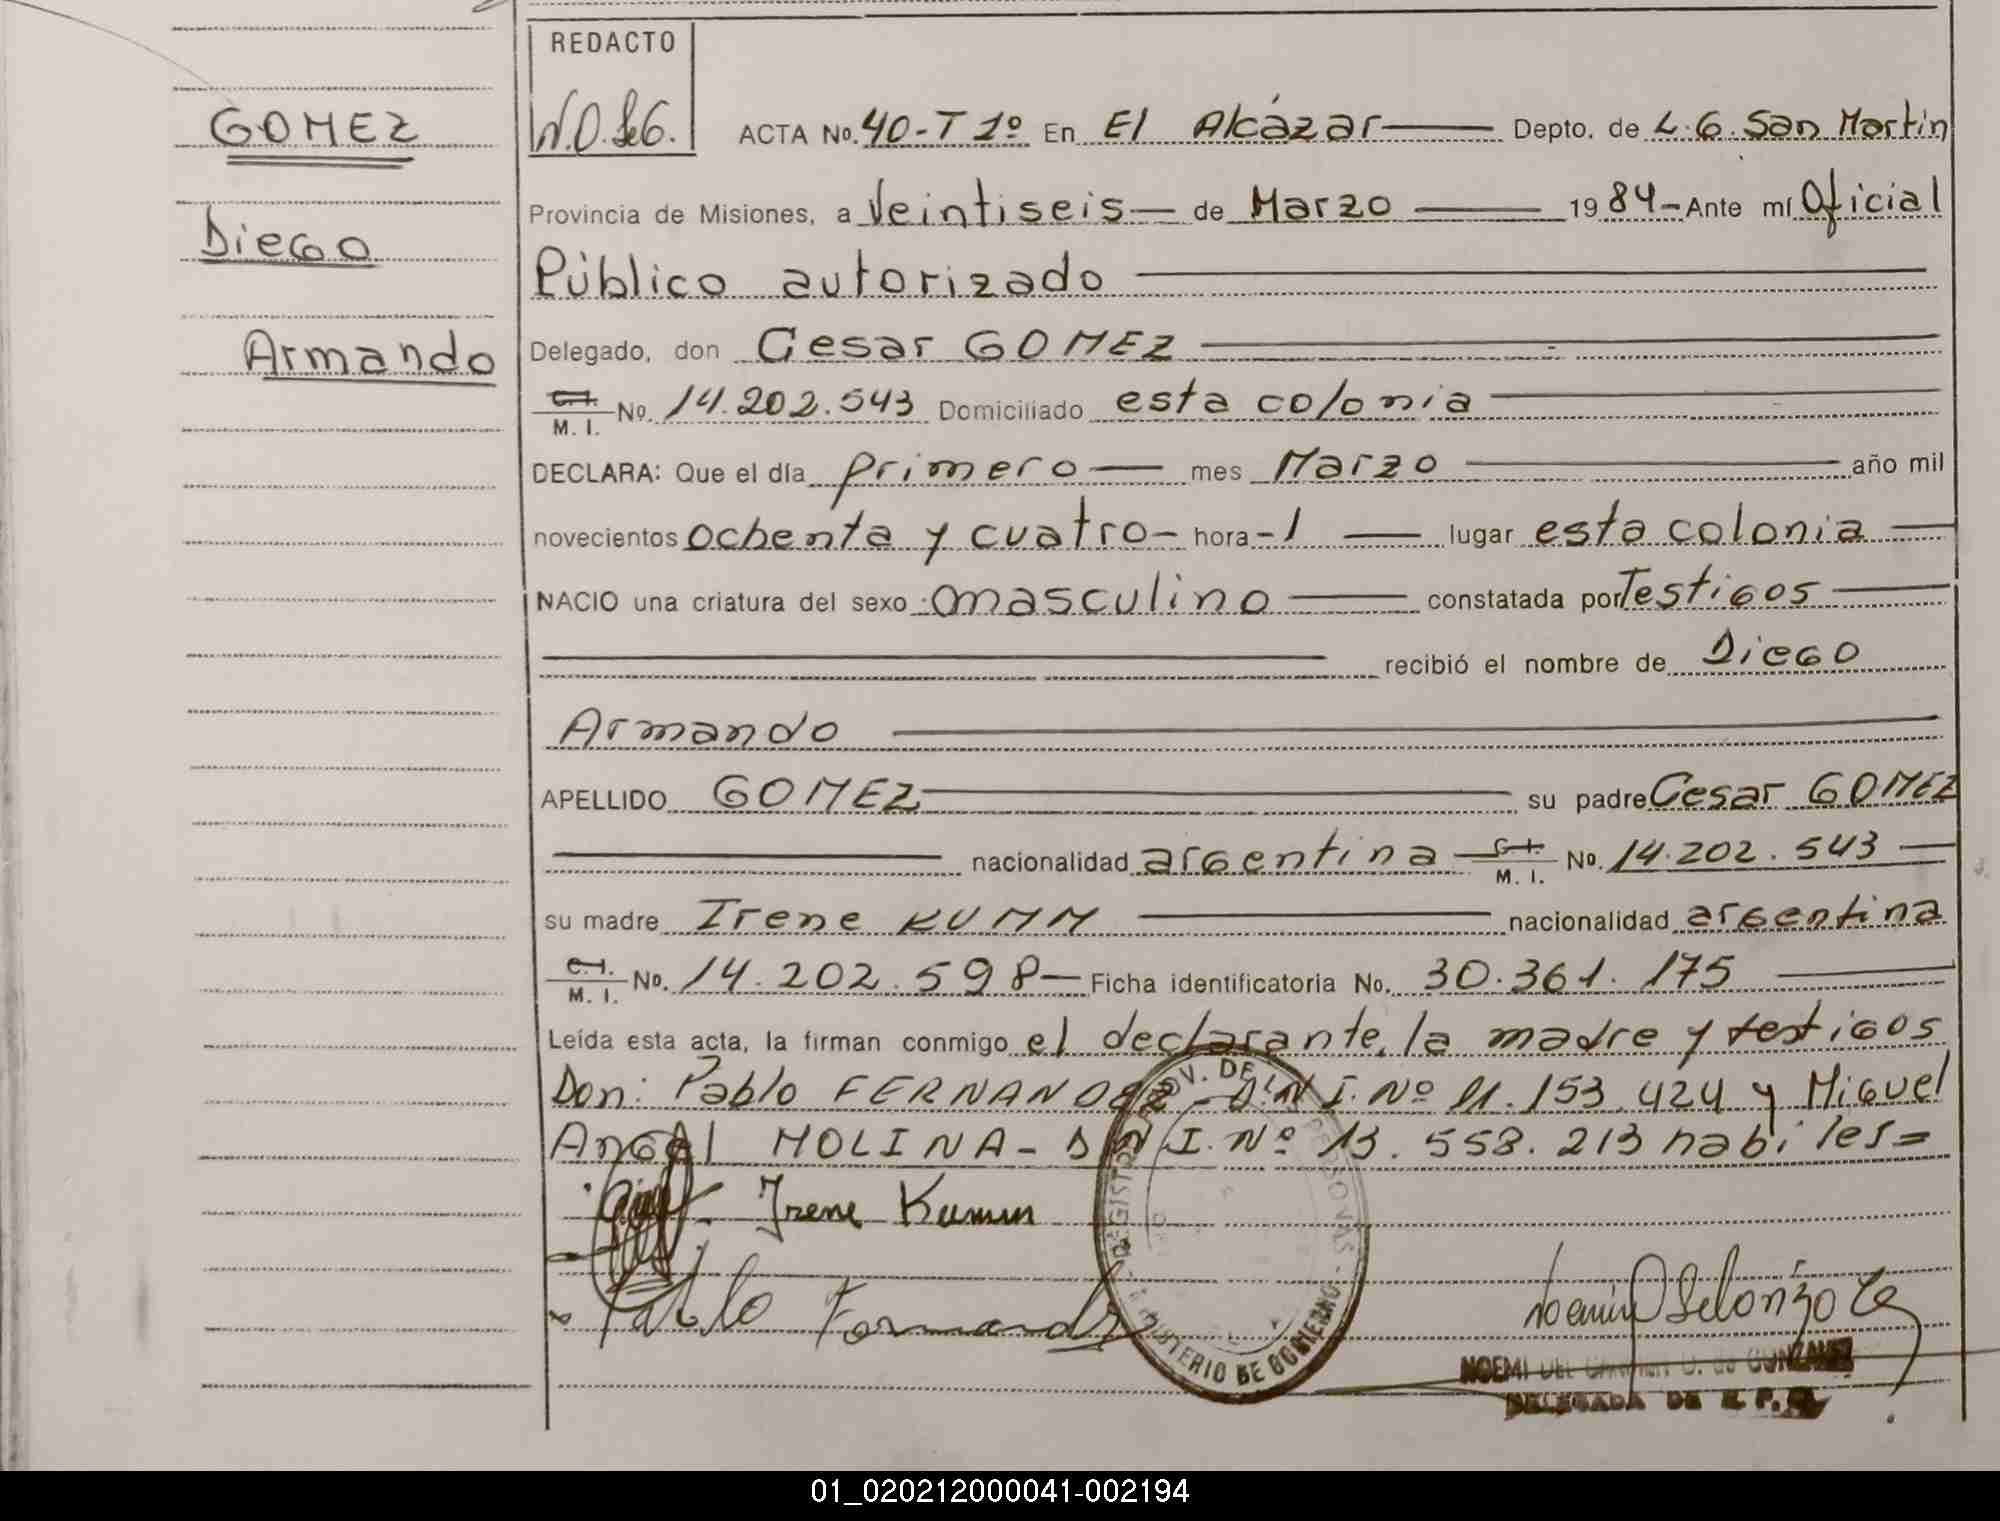 GOMEZ
Diego
Armando
REDACTO
N.O. de G.
ACTA No. 40-T 1º En El Alcázar Depto. de L.G. San Martin
Provincia de Misiones, a Veintiseis de Marzo 1984 - Ante mí Oficial
Público autorizado
Delegado, don Cesar GOMEZ
C.I. M. I. No. 14.202.543 Domiciliado esta colonia
DECLARA: Que el día primero mes Marzo año mil
novecientos ochenta y cuatro - hora - 1 lugar esta colonia
NACIO una criatura del sexo masculino constatada por Testigos
recibió el nombre de Diego
Armando
APELLIDO GOMEZ su padre Cesar GOMEZ
nacionalidad argentina C.I. M. I. No. 14.202.543
su madre Irene KUMM nacionalidad argentina
C.I. M. I. No. 14.202.598 - Ficha identificatoria No. 30.361.175
Leída esta acta, la firman conmigo el declarante, la madre y testigos
Don: Pablo FERNANDEZ - D.N.I. Nº 11.153.424 y Miguel
Angel MOLINA - D.N.I. Nº 13.558.213 habiles =
Irene Kumm
Pablo Fernandez
MINISTERIO DE GOBIERNO
NOEMI DEL CARMEN O. de GONZALEZ
DELEGADA DE R. P.
01_020212000041-002194